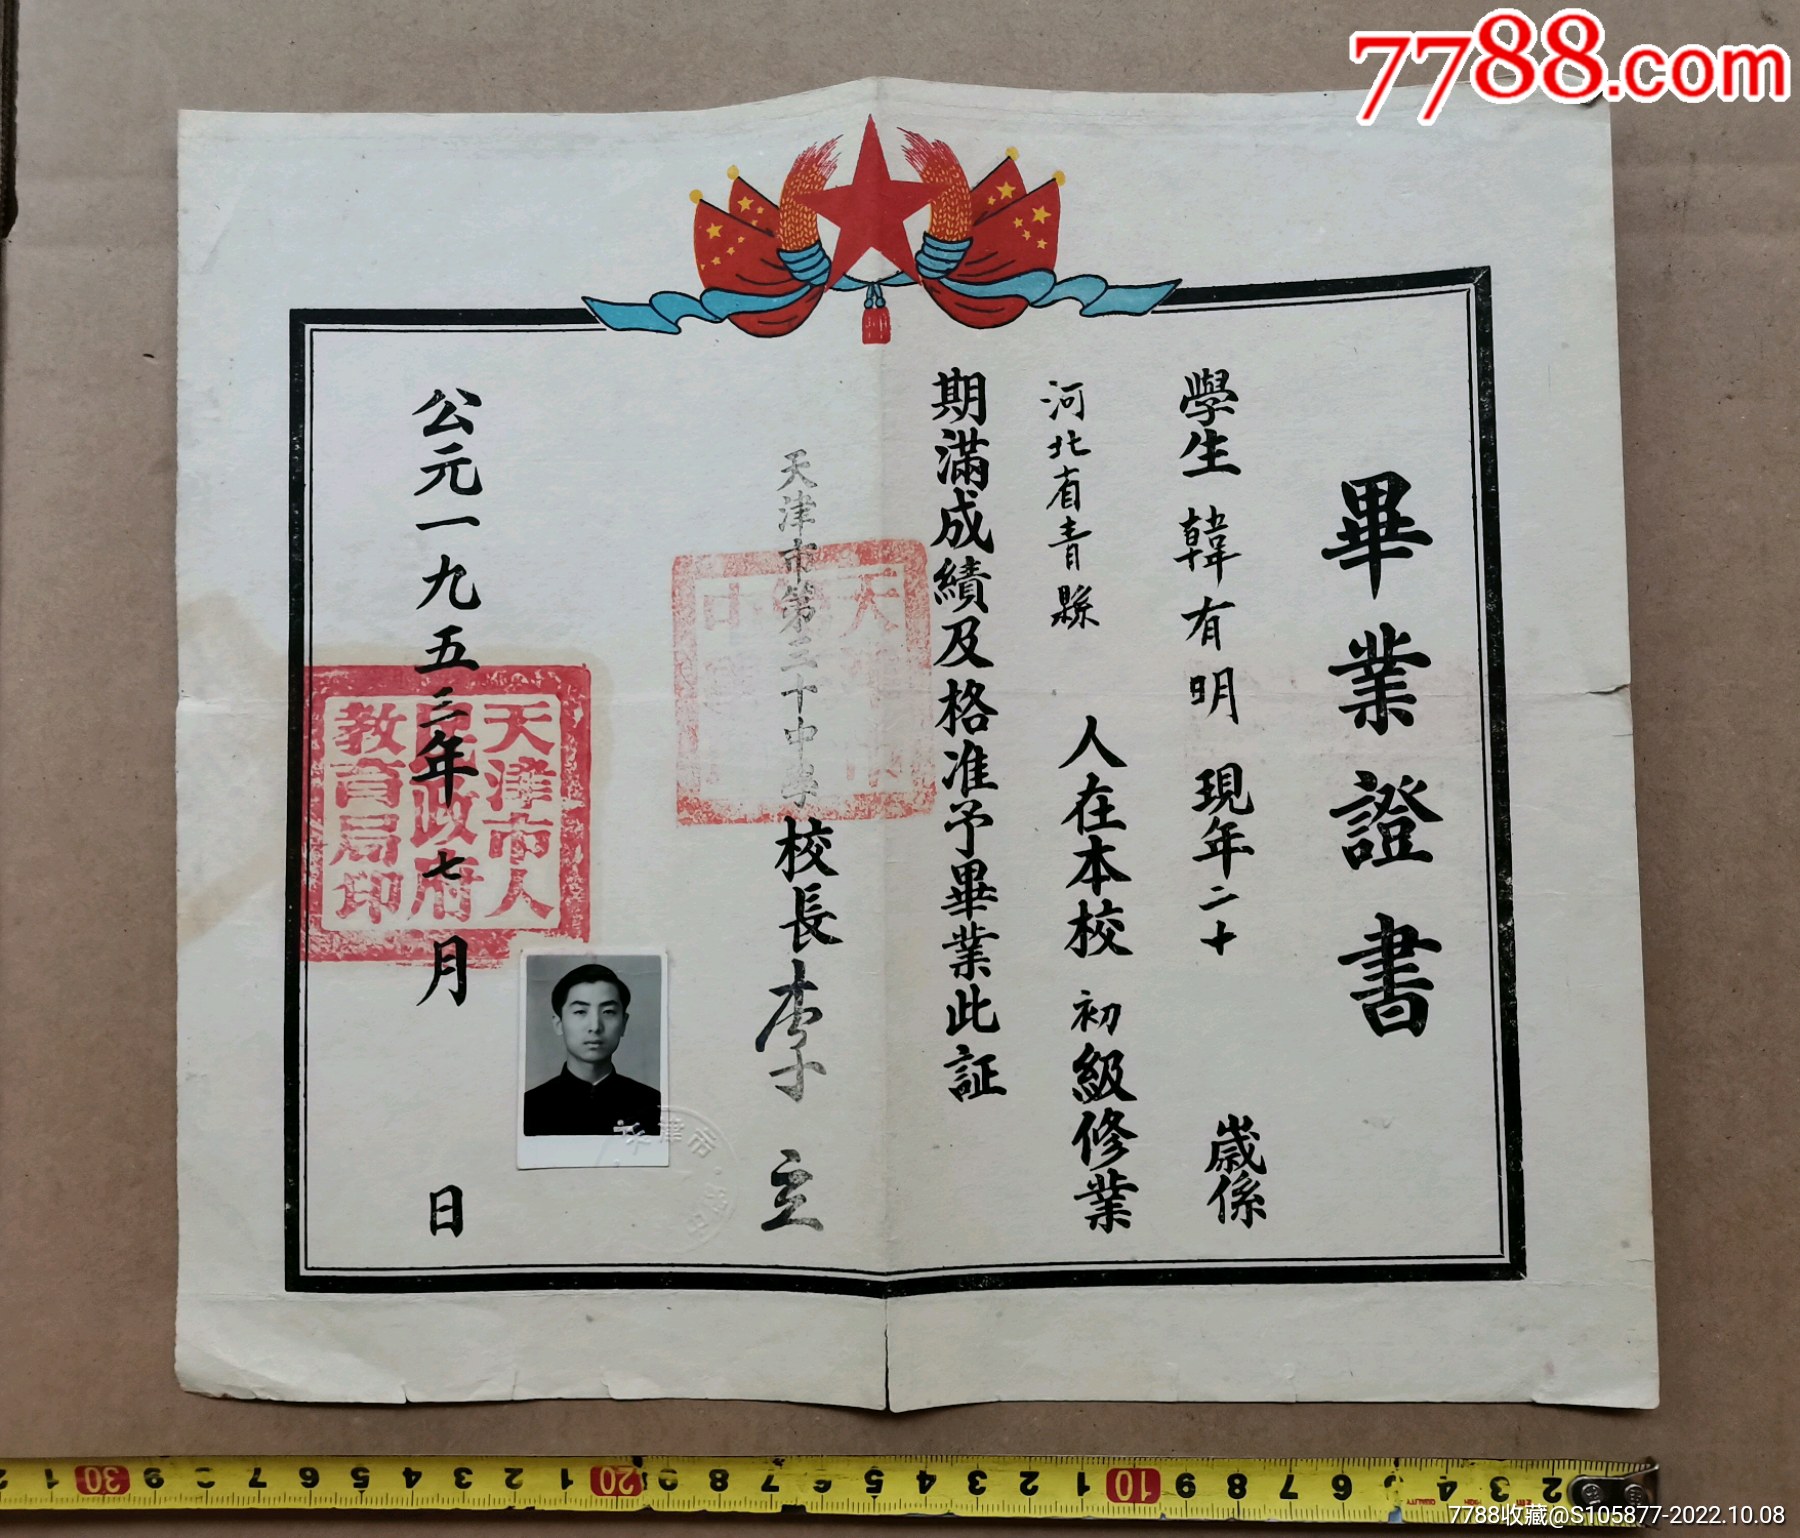 7788.com
畢業證書
學生 韓有明 現年二十 歲係
河北省青縣 人在本校 初級修業
期滿成績及格准予畢業此証
天津市第三十中學 校長 李 立
公元一九五三年七月 日
天津市人
民政府
教育局印
7788收藏@S105877-2022.10.08